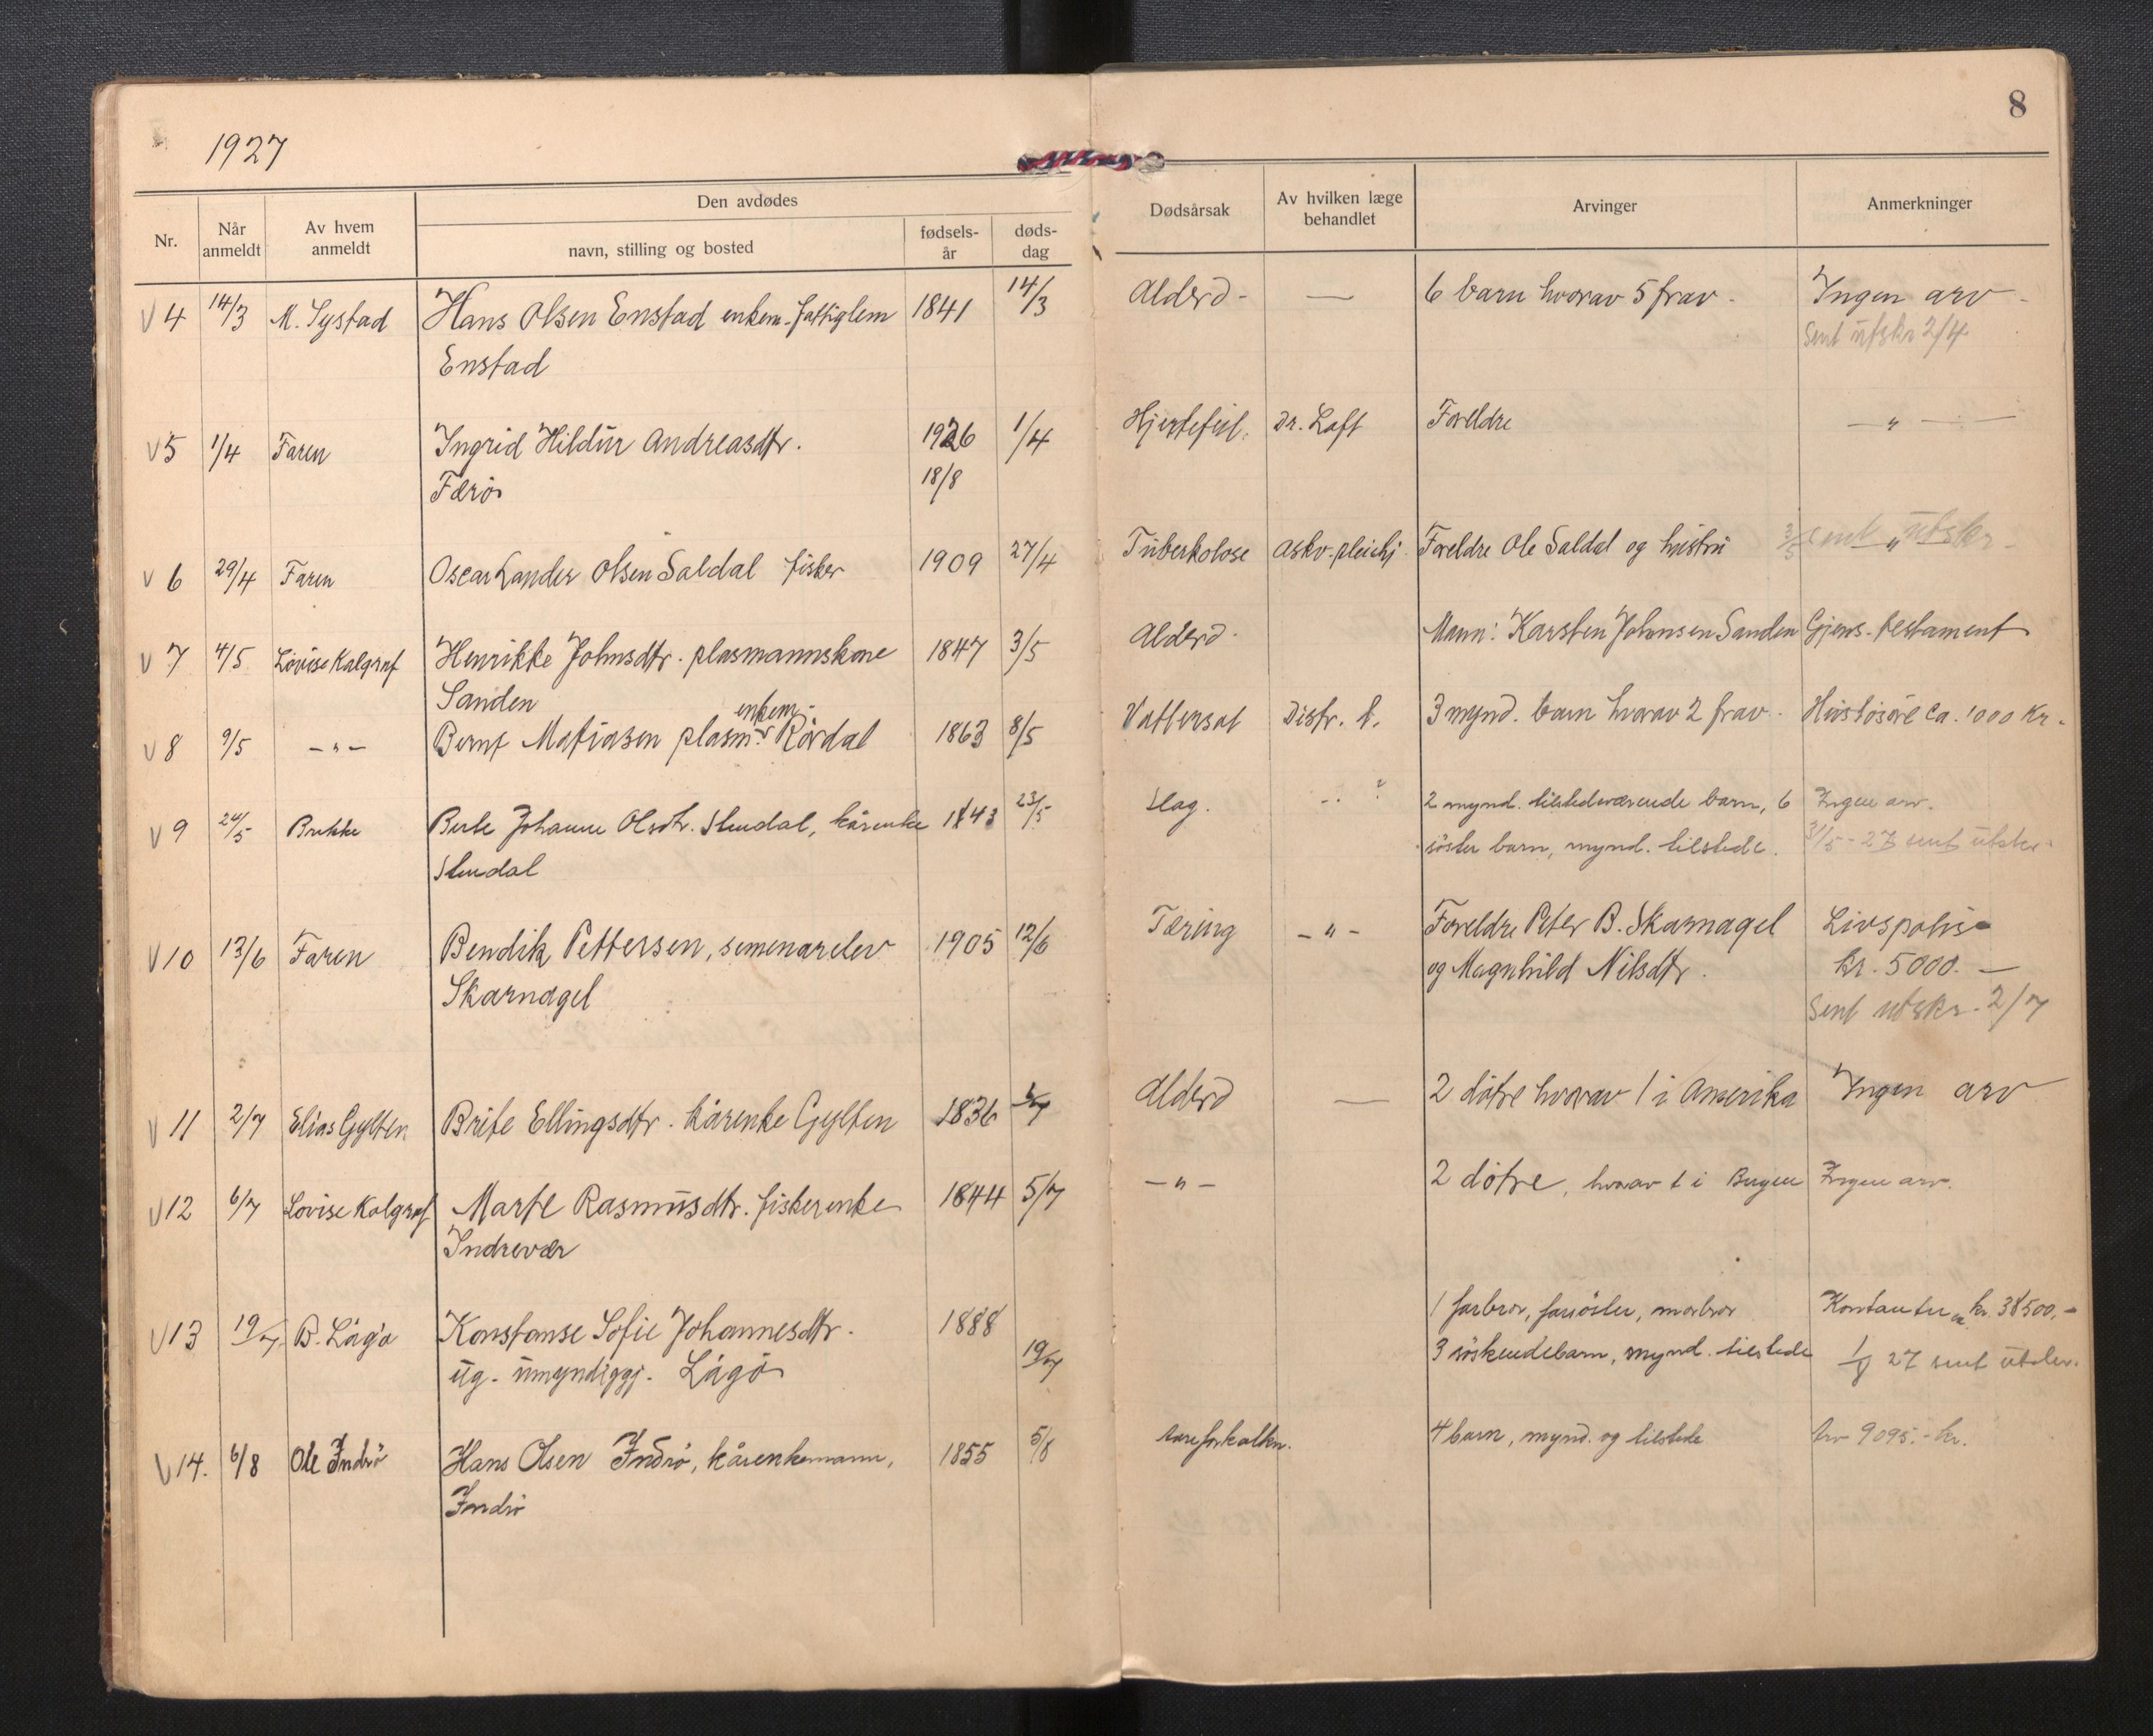 8
1927
Den avdødes
Nr.
Når anmeldt
Av hvem anmeldt
navn, stilling og bosted
fødsels-år
døds-dag
Dødsårsak
Av hvilken læge behandlet
Arvinger
Anmerkninger
V 4 14/3 M. Systad Hans Olsen Enstad enkem. fattiglem 1841 14/3 Alderd - — 6 barn hvorav 5 frav. Ingen arv -
Enstad Sent utskr 2/4
V 5 1/4 Faren Ingrid Hildur Andreasdtr. 1926 1/4 Hjertefeil. Dr. Loft Foreldre — " —
Færö 18/8
V 6 29/4 Faren Oscar Lander Olsen Saldal fisker 1909 27/4 Tuberkolose Askv. pleiehj. Foreldre Ole Saldal og hustru " 3/5 sent utskr.
V 7 4/5 Lovise Kalgraf Henrikke Johnsdtr. plasmannskone 1847 3/5 Alderd. Mann: Karsten Johnsen Sanden Gjens. testament
Sanden
enkem.
V 8 9/5 - " - Bernt Matiasen plasm. Rördal 1863 8/5 Vattersot Distr. l. 3 mynd. barn hvorav 2 frav. Husløsöre ca. 1000 Kr.
V 9 24/5 Brekke Berte Johanne Olsdtr. Stendal, kårenke 1843 23/5 Slag. - " - ? 2 mynd. tilstedeværende barn, 6 Ingen arv.
Stendal söster barn, mynd. tilstede. 31/5-27 sent utskr.
V 10 13/6 Faren Bendik Pettersen, semenarelev 1905 12/6 Tæring - " - Foreldre Peter B. Skarnagel Livspolise
Skarnagel og Magnhild Nilsdtr. kr. 5000. —
Sent utskr. 2/7
V 11 2/7 Elias Gylten Brite Ellingsdtr. kårenke Gylten 1836 Alderd — 2 dötre hvorav 1 i Amerika Ingen arv
V 12 6/7 Lovise Kalgraf Marte Rasmusdtr. fiskerenke 1844 5/7 - " - 2 dötre, hvorav 1 i Bergen Ingen arv.
Indrevær
V 13 19/7 B. Lågö Konstanse Sofie Johannesdtr. 1888 1 farbror, farsöster, morbror Kontanter ca. kr. 38500.-
ug. umyndiggj. Lågö 19/7 3 söskendebarn, mynd. tilstede 1/8 27 sent utskr.
V 14. 6/8 Ole Indrö Hans Olsen Indrö, kårenkemann, 1855 5/8 Aareforkalkn. 4 barn, mynd. og tilstede Arv 9095.- kr.
Indrö